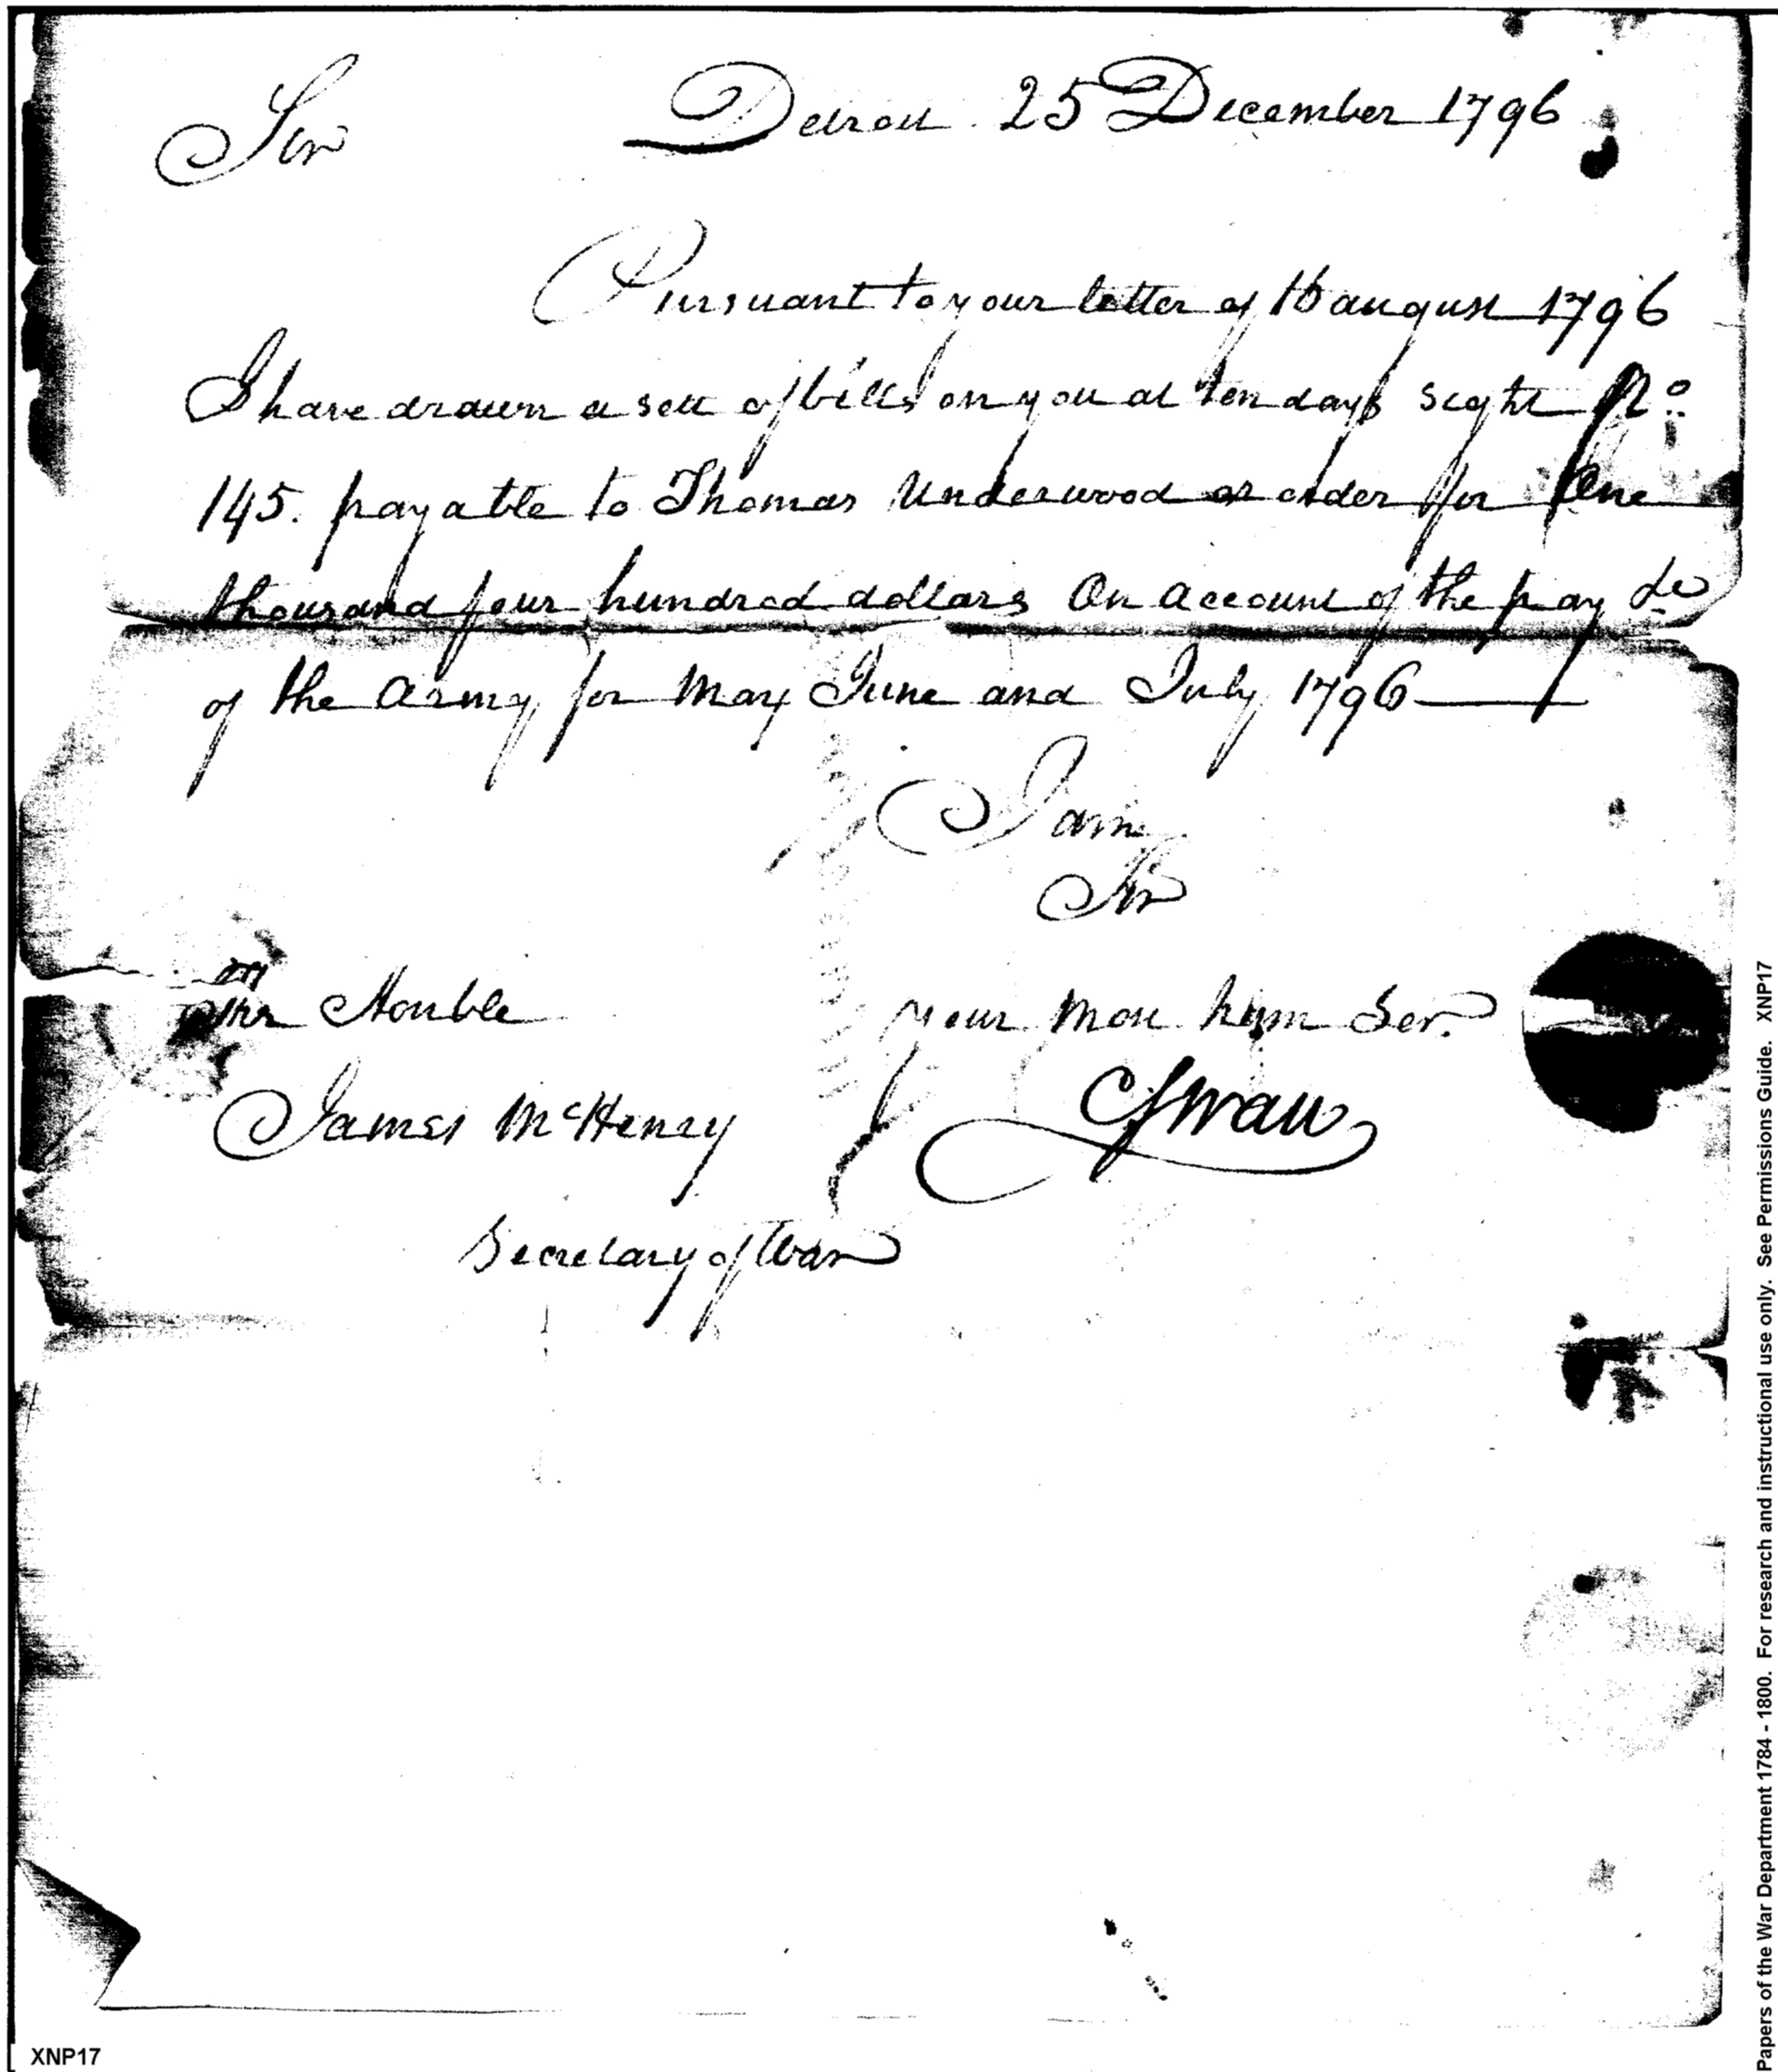 Sir Detroit 25 December 1796
Pursuant to your letter of 16 august 1796
I have drawn a sett of bills on you at ten days sight No
145. payable to Thomas Underwood or order for One
thousand four hundred dollars On account of the pay &c
of the army for May June and July 1796
I am
Sir
The Honble your Most hum Ser.
James McHenry CSwan
Secretary of War
XNP17
Papers of the War Department 1784 - 1800. For research and instructional use only. See Permissions Guide. XNP17